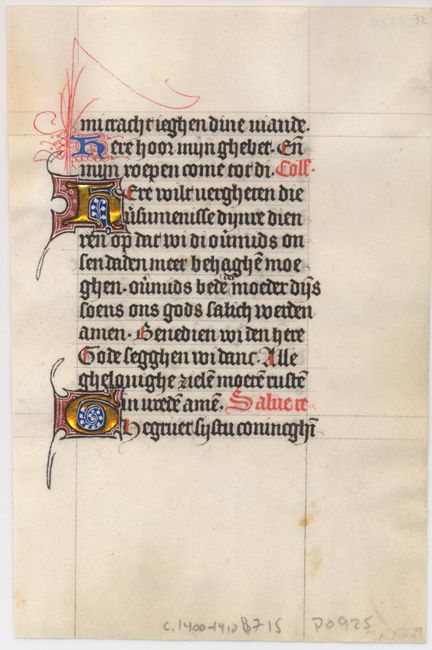 32
mi cracht ieghen dine viande.
Here hoor mijn ghebet. En̄
mijn roepen come tot di. Coll̄.
HEre wilt vergheten die
v̄sumenisse dijnre dien
ren op dat wi di ov̄mids on
sen daden meer behaghē moe
ghen. ov̄mids bede der moeder dijs̄
soens ons gods salich werden
amen. Benedien wi den here
Gode segghen wi danc Alle
ghelouighe zielē moetē rustē
in vredē amē. Salue re
Ghegruet sijstu coninghī
c. 1400-1410 B715 P0925